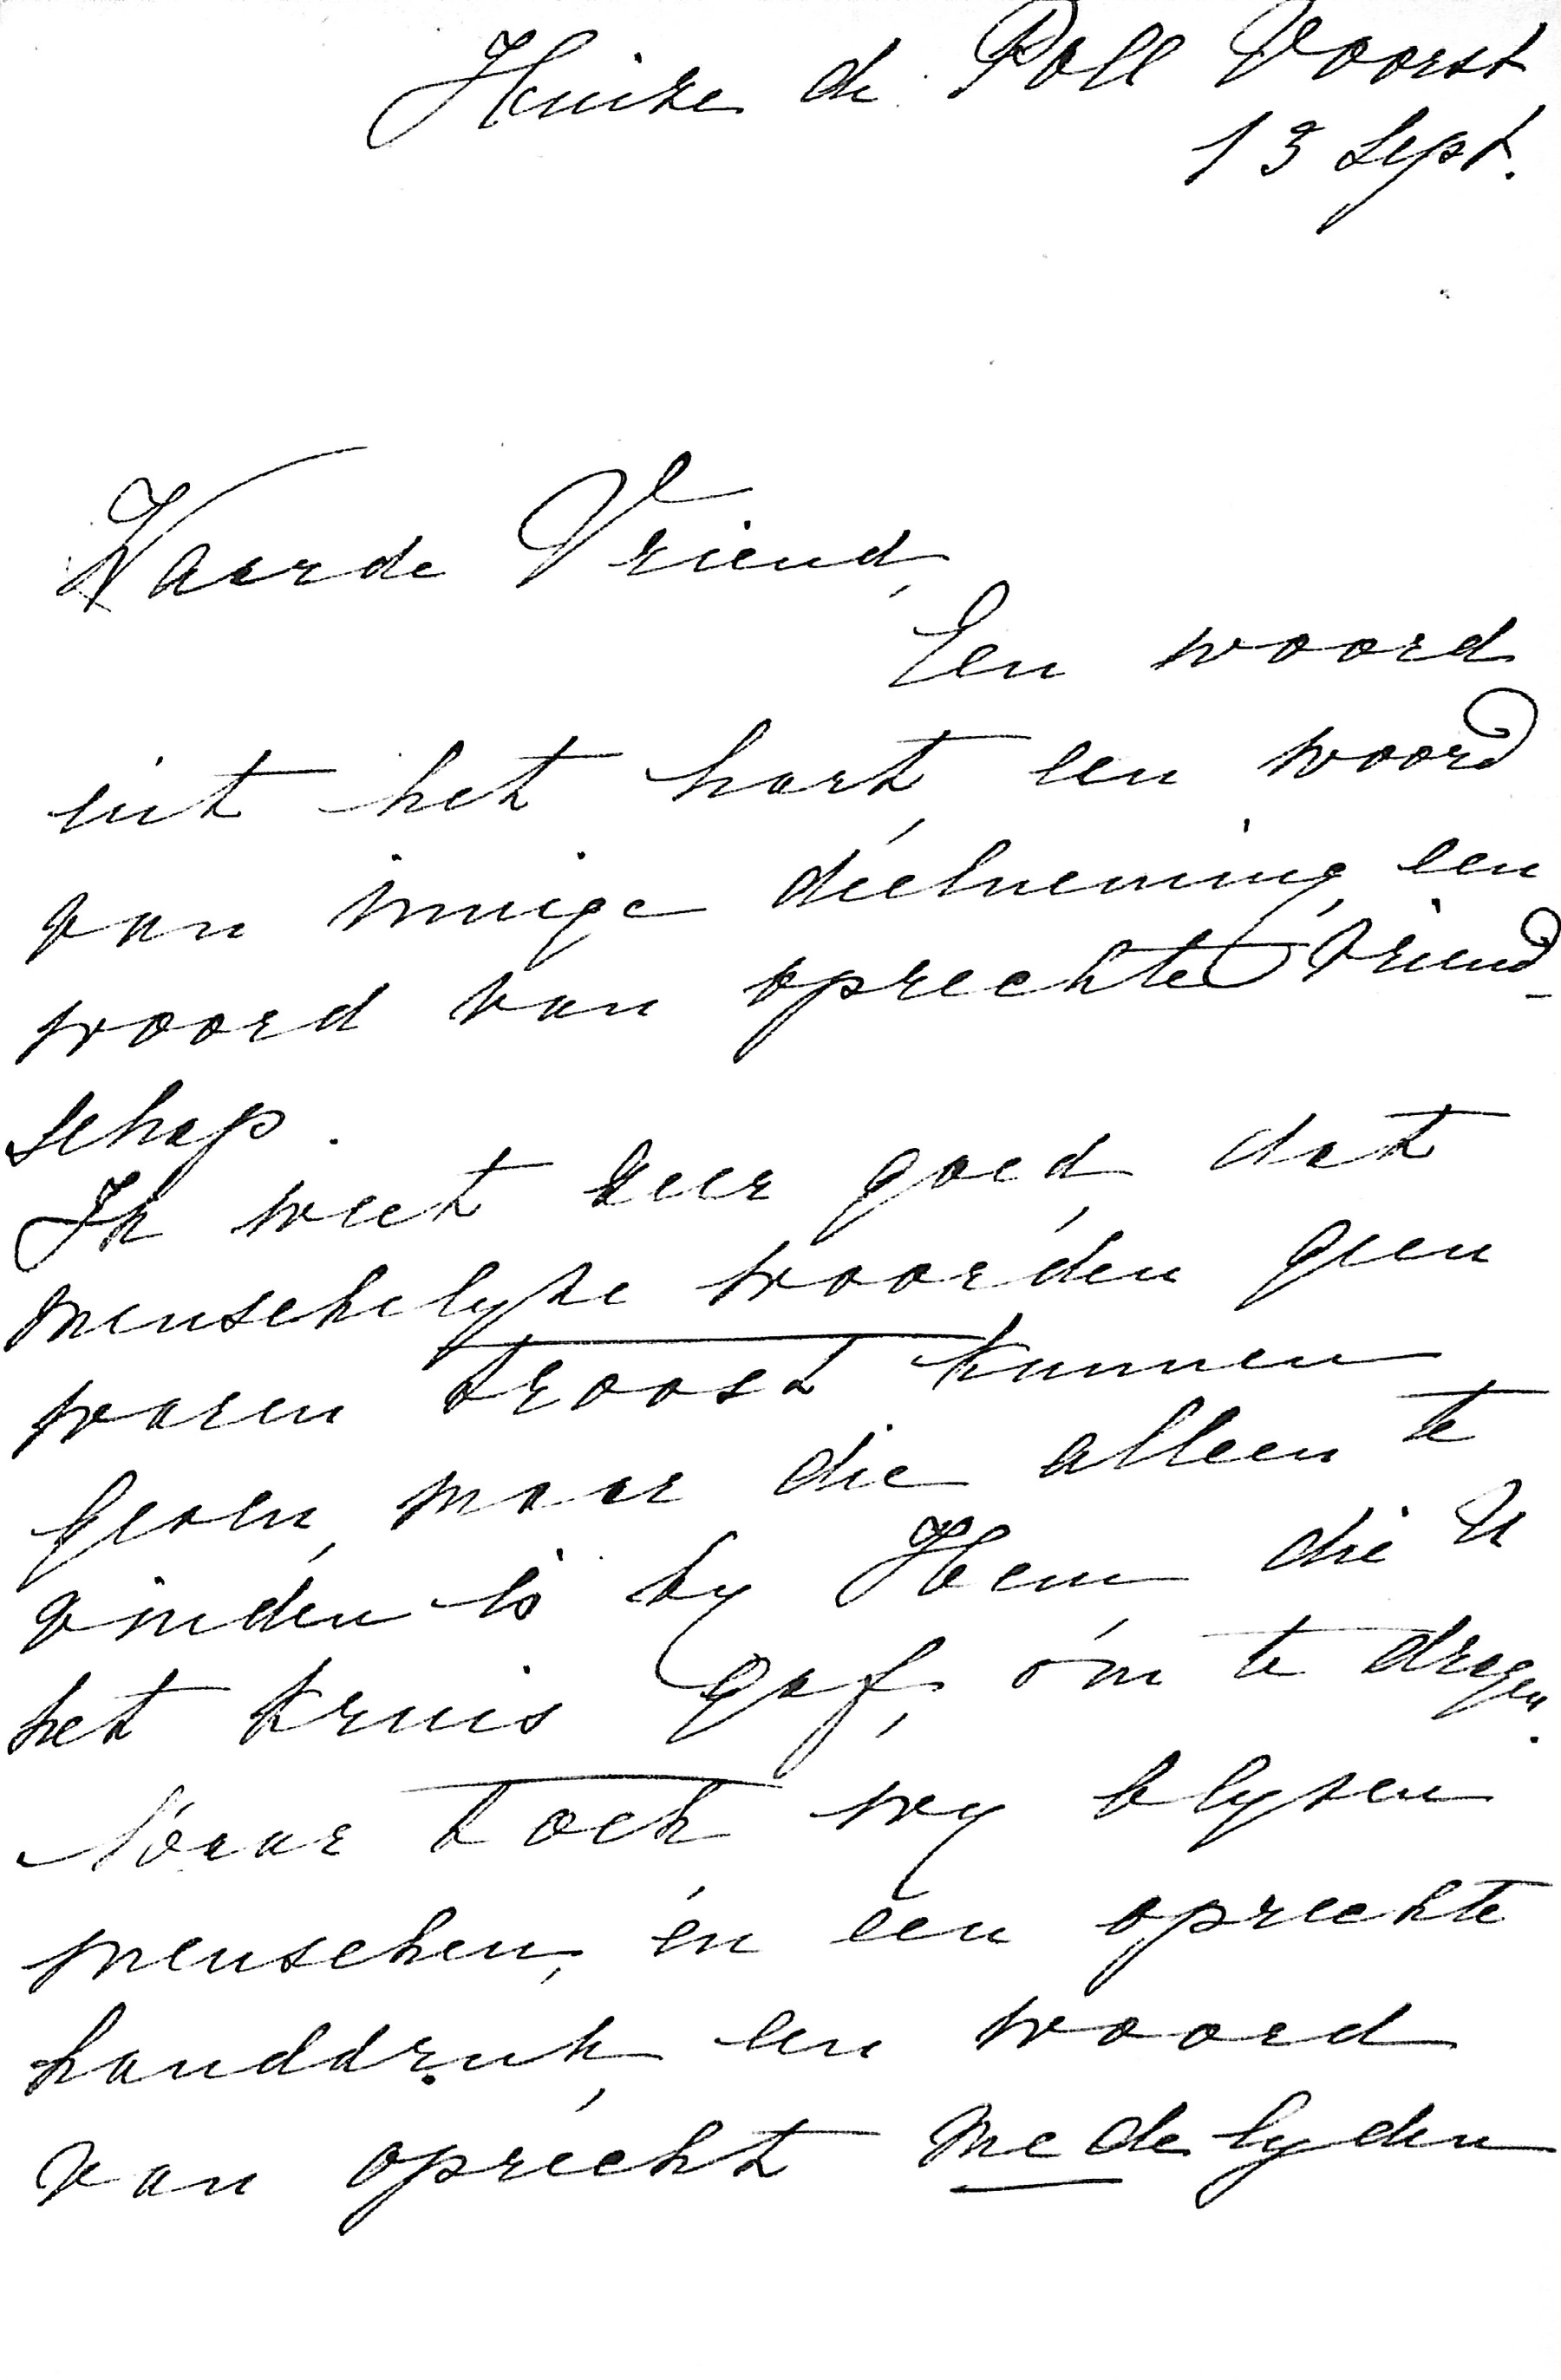 Huize de Poll Voorst
13 Sept.
Waarde Vriend,
Een woord
uit het hart, een woord
van innige deelneming, een
woord van oprechte vriend-
schap.
Ik weet zeer goed, dat
menschelyke woorden geen
waren troost kunnen
geven, maar die alleen te
vinden is by Hem die U
het kruis gaf, om te dragen.
Maar toch wy blyven
menschen, en een oprechte
handdruk, een woord
van oprecht medelyden